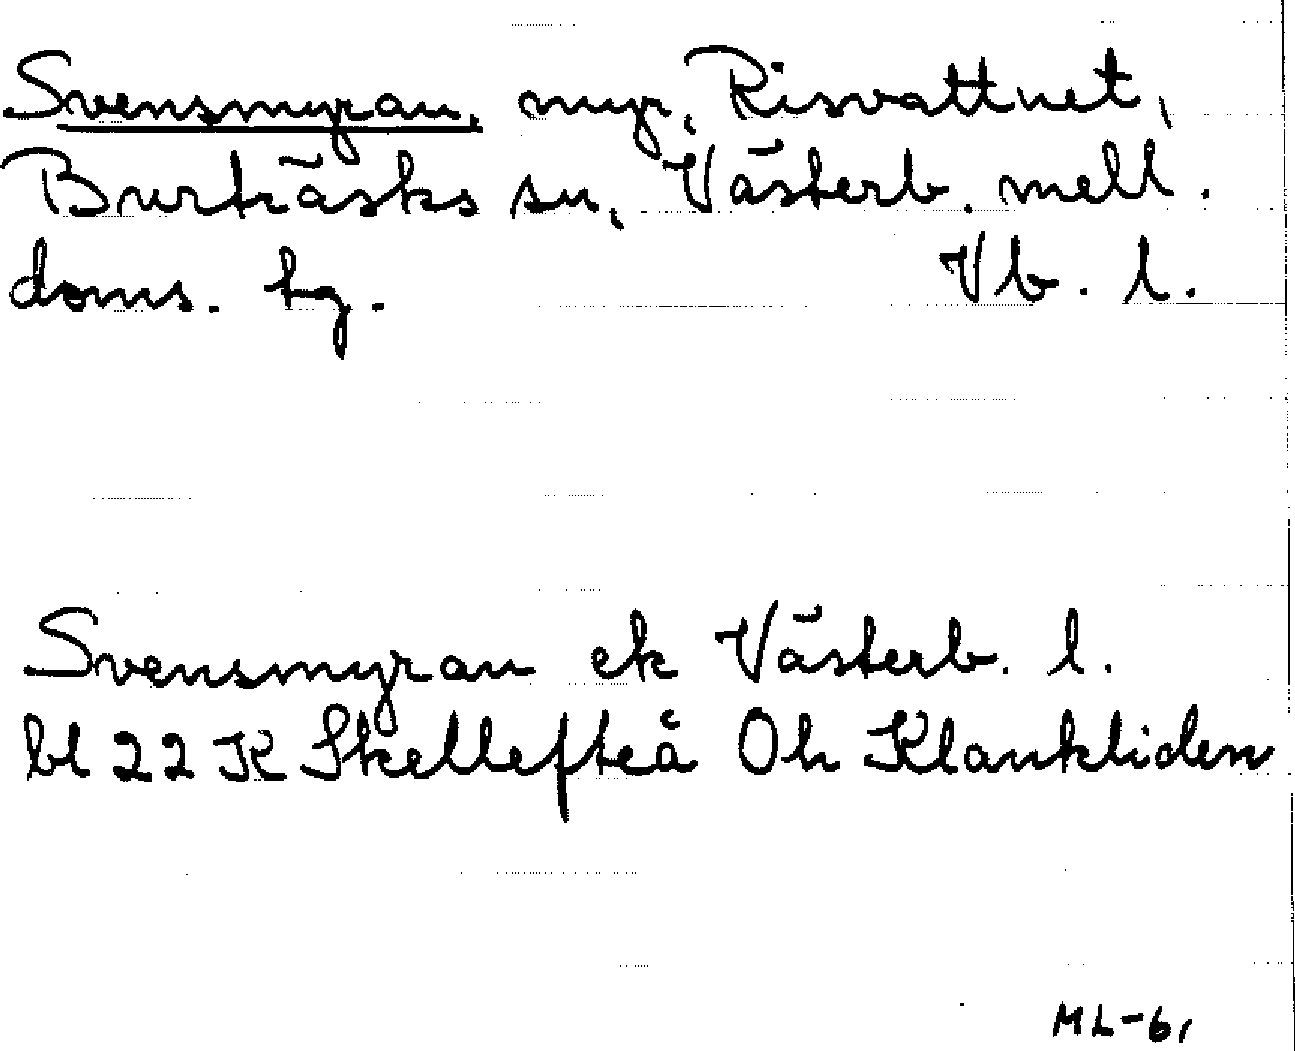 Svensmyran, myr, Risvattnet,
Burträsks sn, Västerb. mell.
doms. tg. Vb. l.
Svensmyran ek Västerb. l.
bl 22 K Skellefteå Oh Klankliden
ML-61